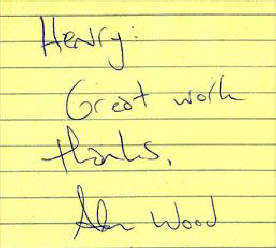 Henry:
Great work
thanks,
Wood